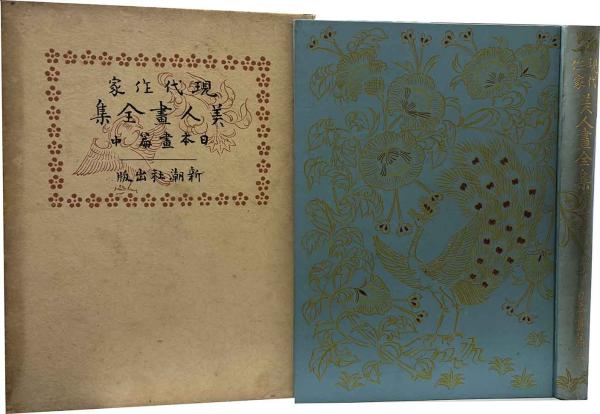 現代作家
美人畫全集
日本畫篇 中
新潮社出版
現代
作家
美人畫全集